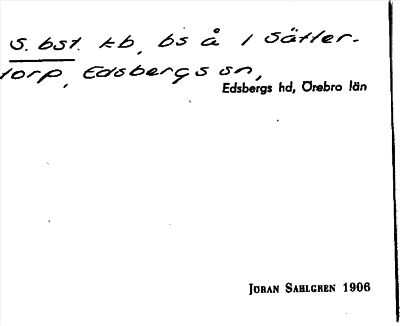 S. bst. kb, bs å i Sätter-
torp, Edsbergs sn,
Edsbergs hd, Örebro län
Jöran Sahlgren 1906